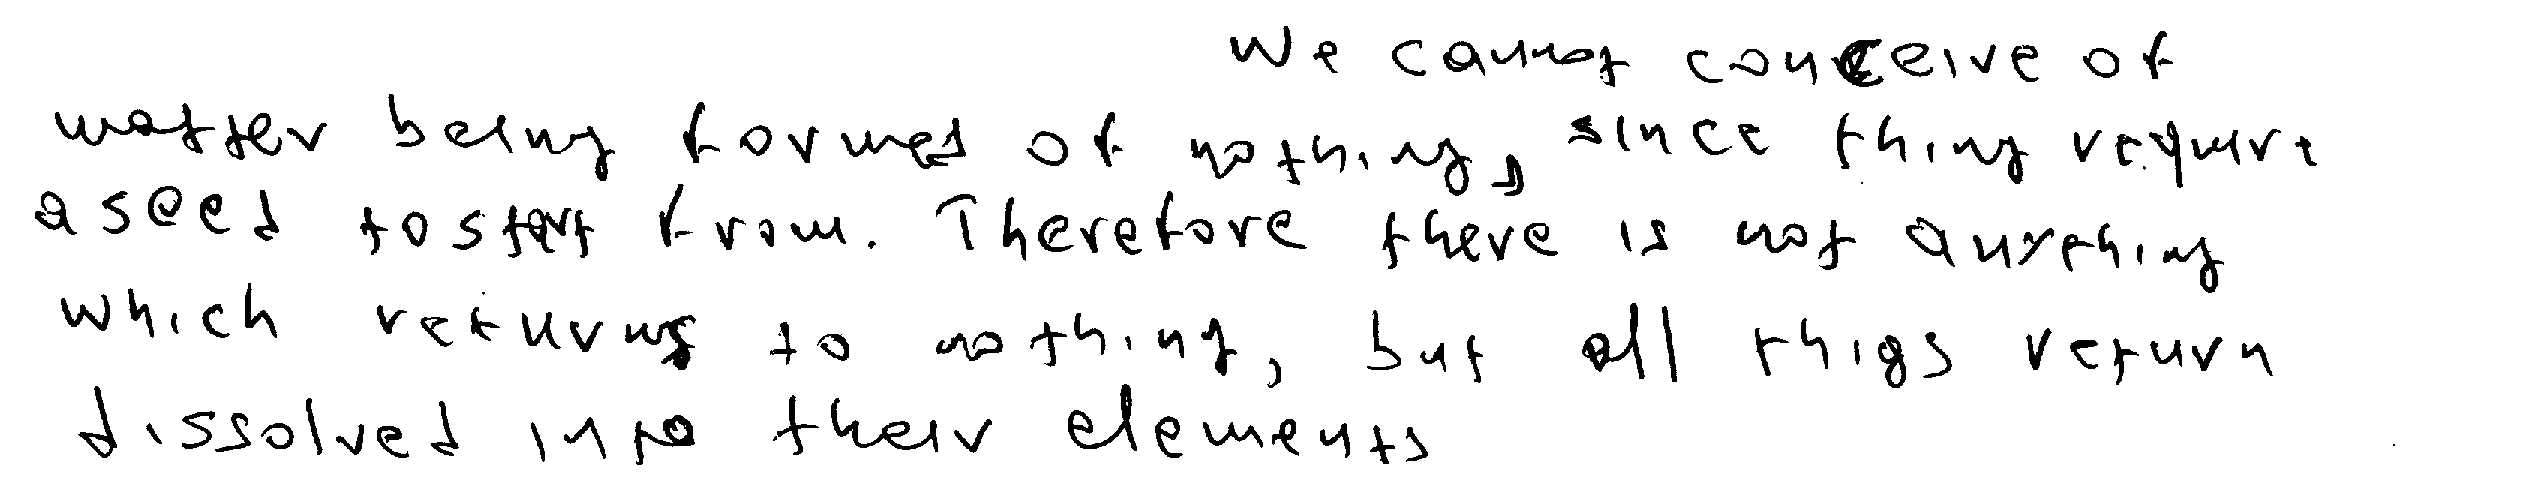 We cannot conceive of
matter being formed of nothing, since thing require
a seed to start from. Therefore there is not anything
which returns to nothing, but all thigs return
dissolved into their elements